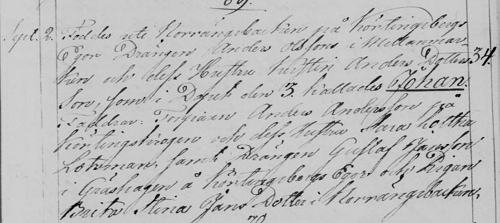 69.
Sept. 2. Föddes uti Norrängsbacken på Körtingsbergs
Egor Drängen Anders Olssons i Mellanmar-
ken och dess Hustru Kjstin Anders Dotters 34
Son, som i Dopet den 3 kallades Johan.
Faddrar: Anders Andersson på
Körtingsbergen och dess Hustru Maria Lotta
Lotsman, samt Drängen Gustaf Jansson
i Gråshagen å Körtingsbergs Egor och Pigan
Brita Stina Jans Dotter i Norrängsbacken.
70.